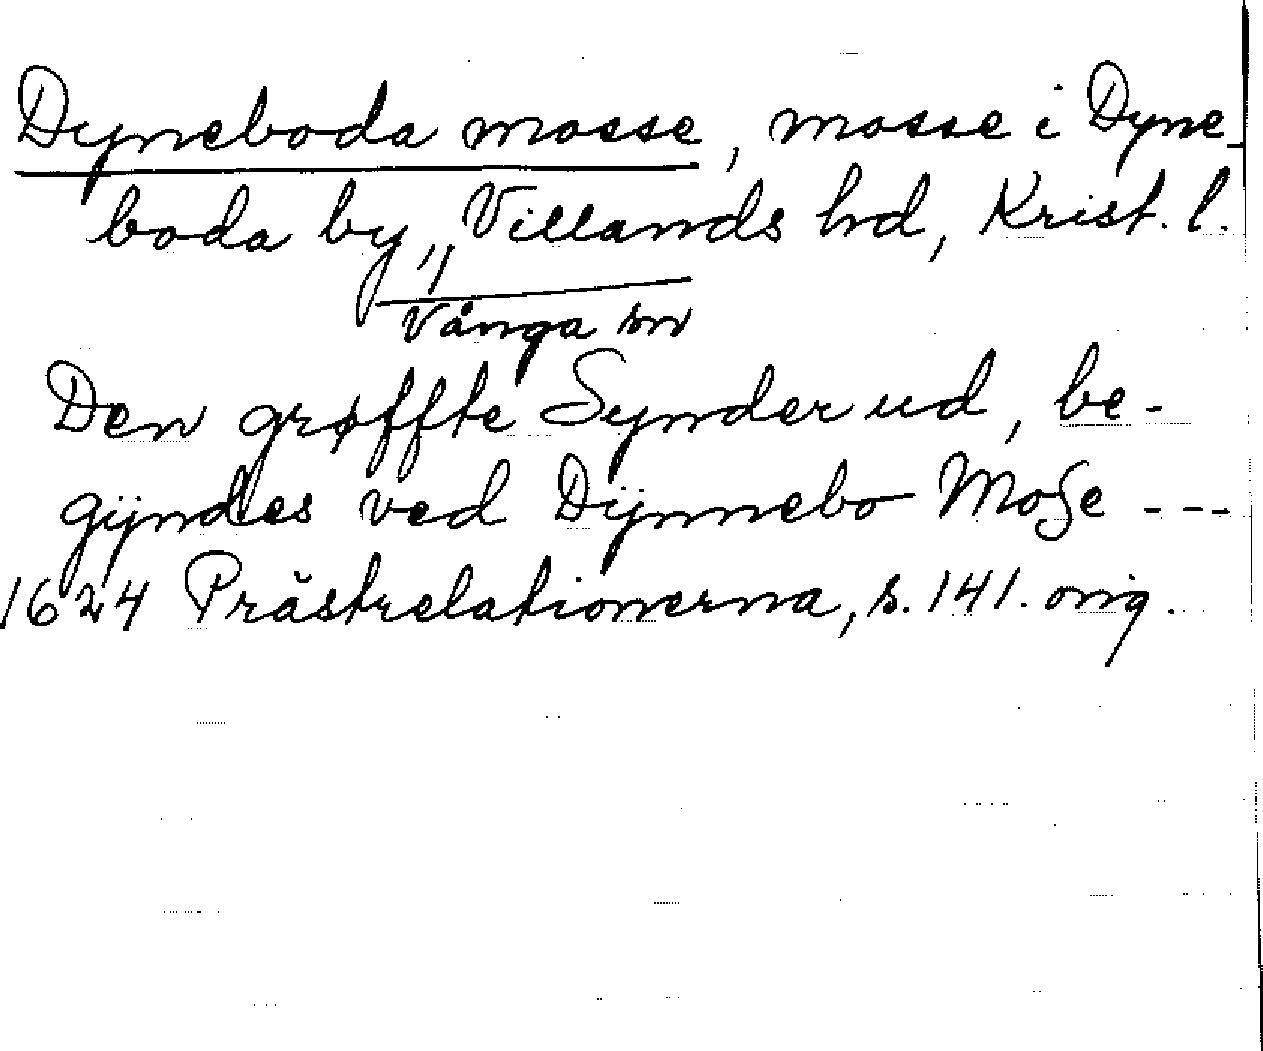 Dyneboda mosse, mosse i Dyne-
boda by,, Villands hd, Krist. l.
Vånga sn
Den grøffte Synder ud, be-
gÿndes ved Dÿnnebo Moße ---
1624 Prästrelationerna, s. 141. orig.